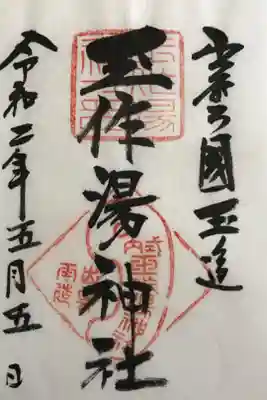 出雲國玉造
玉作湯神社
令和二年五月五日